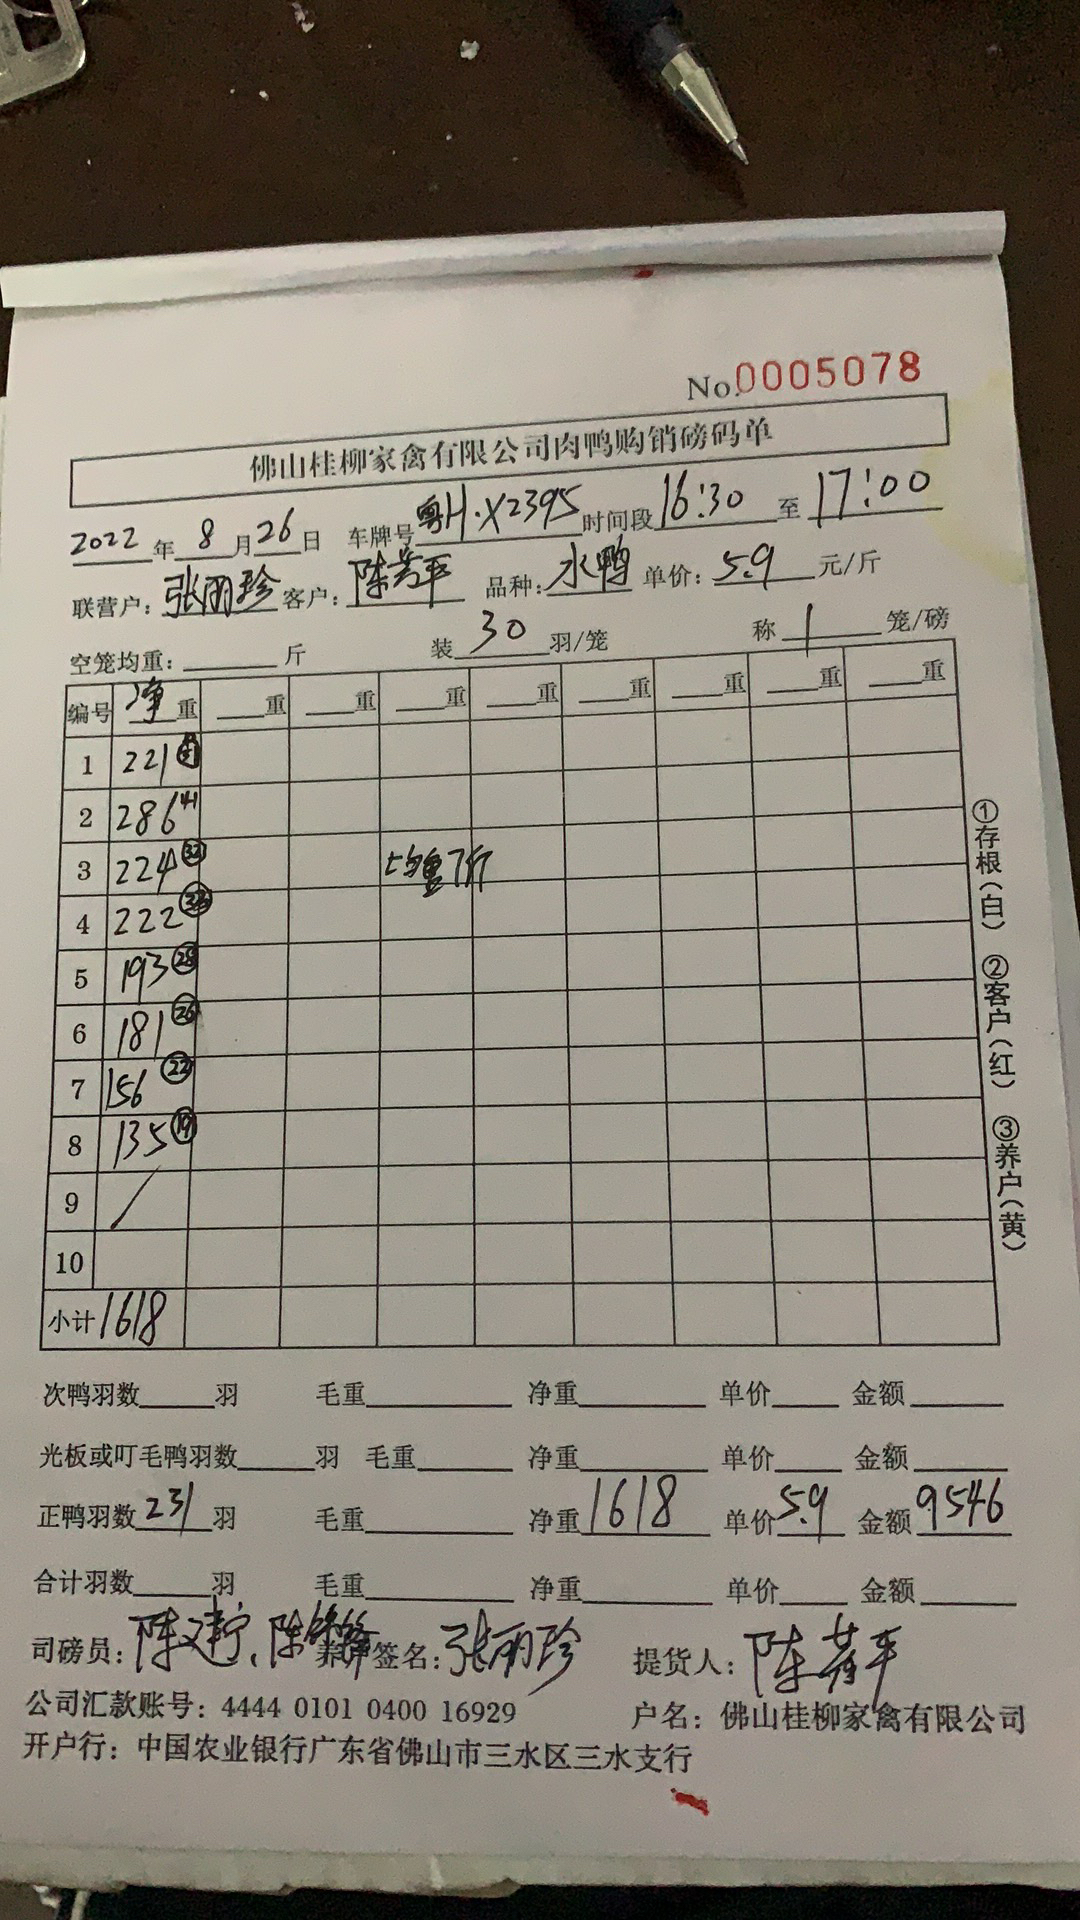 No.0005078
佛山桂柳家禽有限公司肉鸭购销磅码单
2022年8月26日 车牌号粤H·X2395时间段16:30至17:00
联营户：张丽珍客户：陈芳平 品种：水鸭 单价：5.9元/斤
空笼均重：____斤 装30羽/笼 称1笼/磅
编号 净重 __重 __重 __重 __重 __重 __重 __重 __重
1 221 31
2 286 41
3 224 32 均重7斤
4 222
5 193 28
6 181 26
7 156 22
8 135 19
9 /
10
小计 1618
①存根（白） ②客户（红） ③养户（黄）
次鸭羽数____羽 毛重____ 净重____ 单价____ 金额____
光板或叮毛鸭羽数____羽 毛重____ 净重____ 单价____ 金额____
正鸭羽数231羽 毛重____ 净重1618 单价5.9 金额9546
合计羽数____羽 毛重____ 净重____ 单价____ 金额____
司磅员：陈文建宁、陈 养户签名：张丽珍 提货人：陈芳平
公司汇款账号：4444 0101 0400 16929 户名：佛山桂柳家禽有限公司
开户行：中国农业银行广东省佛山市三水区三水支行